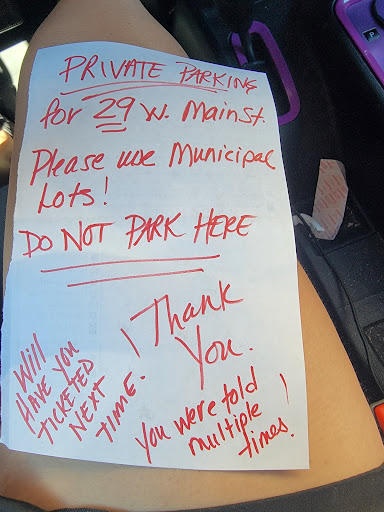 PRIVATE PARKING
for 29 W. Main St.
Please use Municipal
Lots!
DO NOT PARK HERE
Thank
You.
Will
HAVE YOU
TICKETED
NEXT
TIME!
You were told
multiple
times!